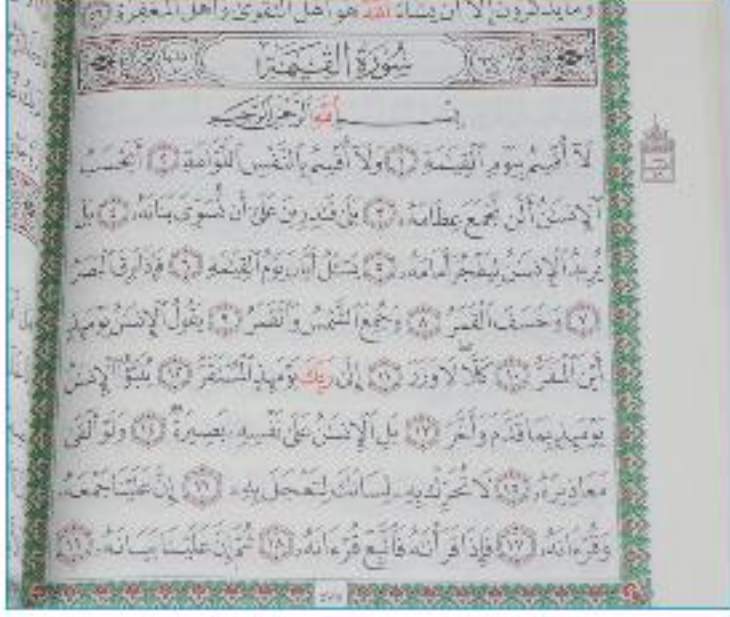 وما يذكرون إلا أن يشاء الله هو أهل التقوى وأهل المغفرة ٥٦
سُورَةُ القِيَامَةِ
بِسْمِ اللَّهِ الرَّحْمَٰنِ الرَّحِيمِ
لَآ أُقْسِمُ بِيَوْمِ ٱلْقِيَٰمَةِ ١ وَلَآ أُقْسِمُ بِٱلنَّفْسِ ٱللَّوَّامَةِ ٢ أَيَحْسَبُ
ٱلْإِنسَٰنُ أَلَّن نَّجْمَعَ عِظَامَهُۥ ٣ بَلَىٰ قَٰدِرِينَ عَلَىٰٓ أَن نُّسَوِّىَ بَنَانَهُۥ ٤ بَلْ
يُرِيدُ ٱلْإِنسَٰنُ لِيَفْجُرَ أَمَامَهُۥ ٥ يَسْـَٔلُ أَيَّانَ يَوْمُ ٱلْقِيَٰمَةِ ٦ فَإِذَا بَرِقَ ٱلْبَصَرُ
٧ وَخَسَفَ ٱلْقَمَرُ ٨ وَجُمِعَ ٱلشَّمْسُ وَٱلْقَمَرُ ٩ يَقُولُ ٱلْإِنسَٰنُ يَوْمَئِذٍ
أَيْنَ ٱلْمَفَرُّ ١٠ كَلَّا لَا وَزَرَ ١١ إِلَىٰ رَبِّكَ يَوْمَئِذٍ ٱلْمُسْتَقَرُّ ١٢ يُنَبَّؤُا۟ ٱلْإِنسَٰنُ
يَوْمَئِذٍۭ بِمَا قَدَّمَ وَأَخَّرَ ١٣ بَلِ ٱلْإِنسَٰنُ عَلَىٰ نَفْسِهِۦ بَصِيرَةٌ ١٤ وَلَوْ أَلْقَىٰ
مَعَاذِيرَهُۥ ١٥ لَا تُحَرِّكْ بِهِۦ لِسَانَكَ لِتَعْجَلَ بِهِۦٓ ١٦ إِنَّ عَلَيْنَا جَمْعَهُۥ
وَقُرْءَانَهُۥ ١٧ فَإِذَا قَرَأْنَٰهُ فَٱتَّبِعْ قُرْءَانَهُۥ ١٨ ثُمَّ إِنَّ عَلَيْنَا بَيَانَهُۥ ١٩